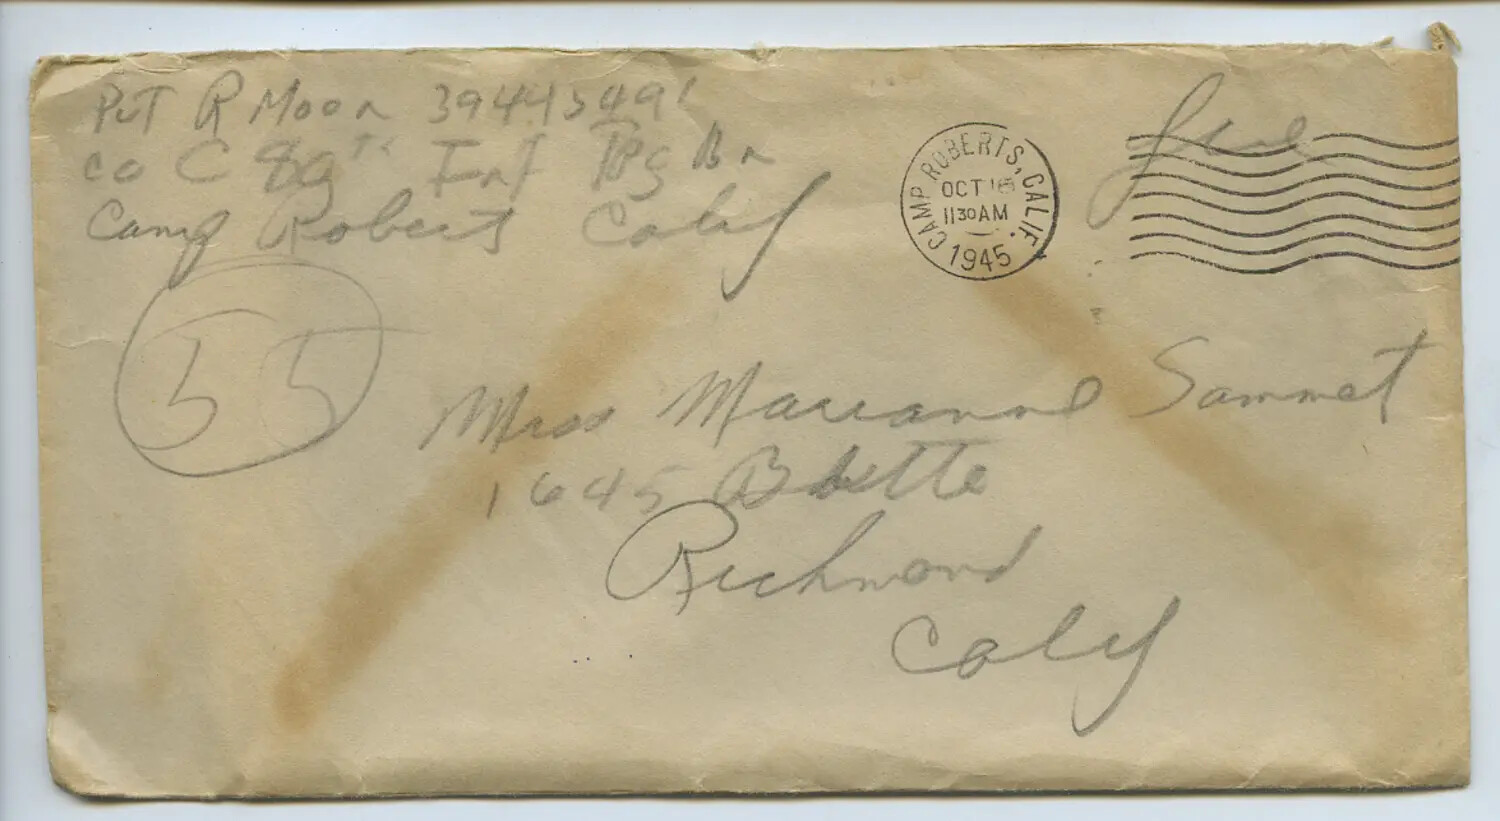 Pvt R Moon 39445491
Co C 89th Inf Trg Bn
Camp Roberts Calif
Free
CAMP ROBERTS, CALIF.
OCT 16
1130AM
1945
55
Miss Marianne Sammet
1645 Butte
Richmond
Calif